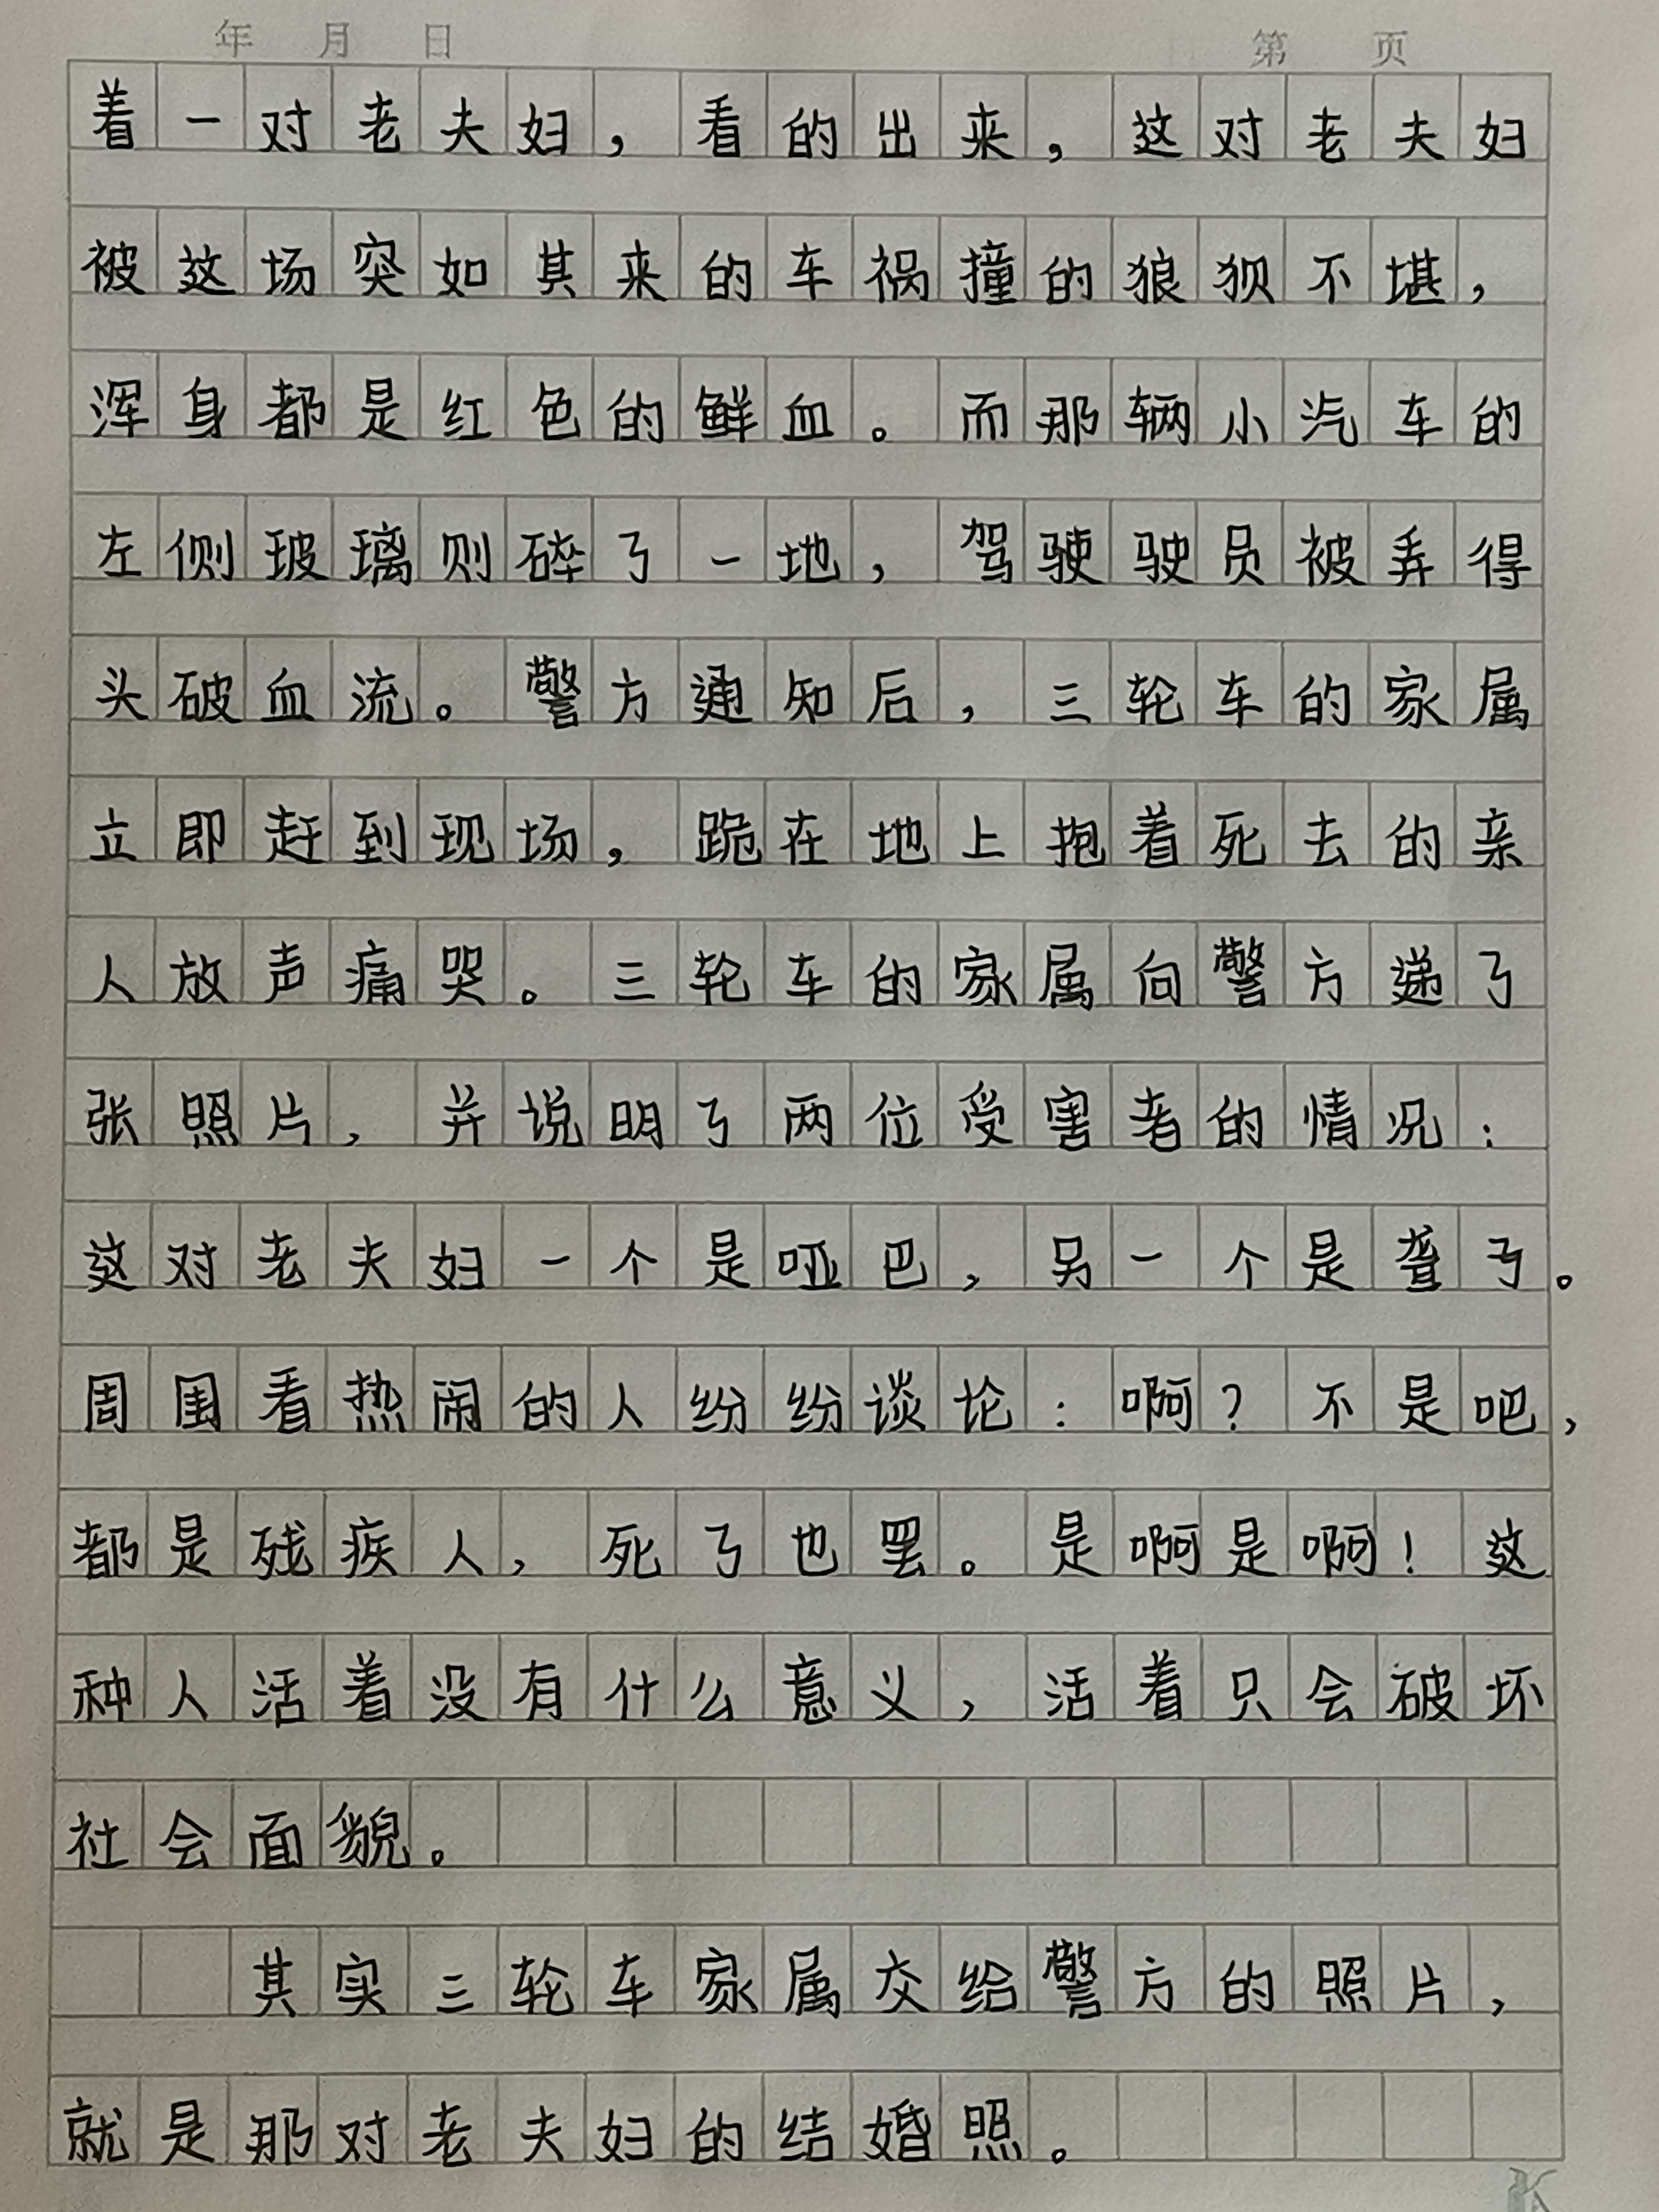 年 月 日 第 页
着一对老夫妇，看的出来，这对老夫妇
被这场突如其来的车祸撞的狼狈不堪，
浑身都是红色的鲜血。而那辆小汽车的
左侧玻璃则碎了一地，驾驶驶员被弄得
头破血流。警方通知后，三轮车的家属
立即赶到现场，跪在地上抱着死去的亲
人放声痛哭。三轮车的家属向警方递了
张照片，并说明了两位受害者的情况：
这对老夫妇一个是哑巴，另一个是聋了。
周围看热闹的人纷纷谈论：啊？不是吧，
都是残疾人，死了也罢。是啊是啊！这
种人活着没有什么意义，活着只会破坏
社会面貌。
其实三轮车家属交给警方的照片，
就是那对老夫妇的结婚照。